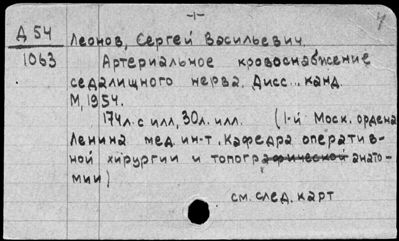 -1-
Д 54 Леонов, Сергей Васильевич.
1063 Артериальное кровоснабжение
седалищного нерва. Дисс... канд.
М, 1954.
174л. с илл, 30л. илл. (1-й Моск. ордена
Ленина мед. ин-т. Кафедра оператив-
ной хирургии и топографической анато-
мии)
см. след. карт